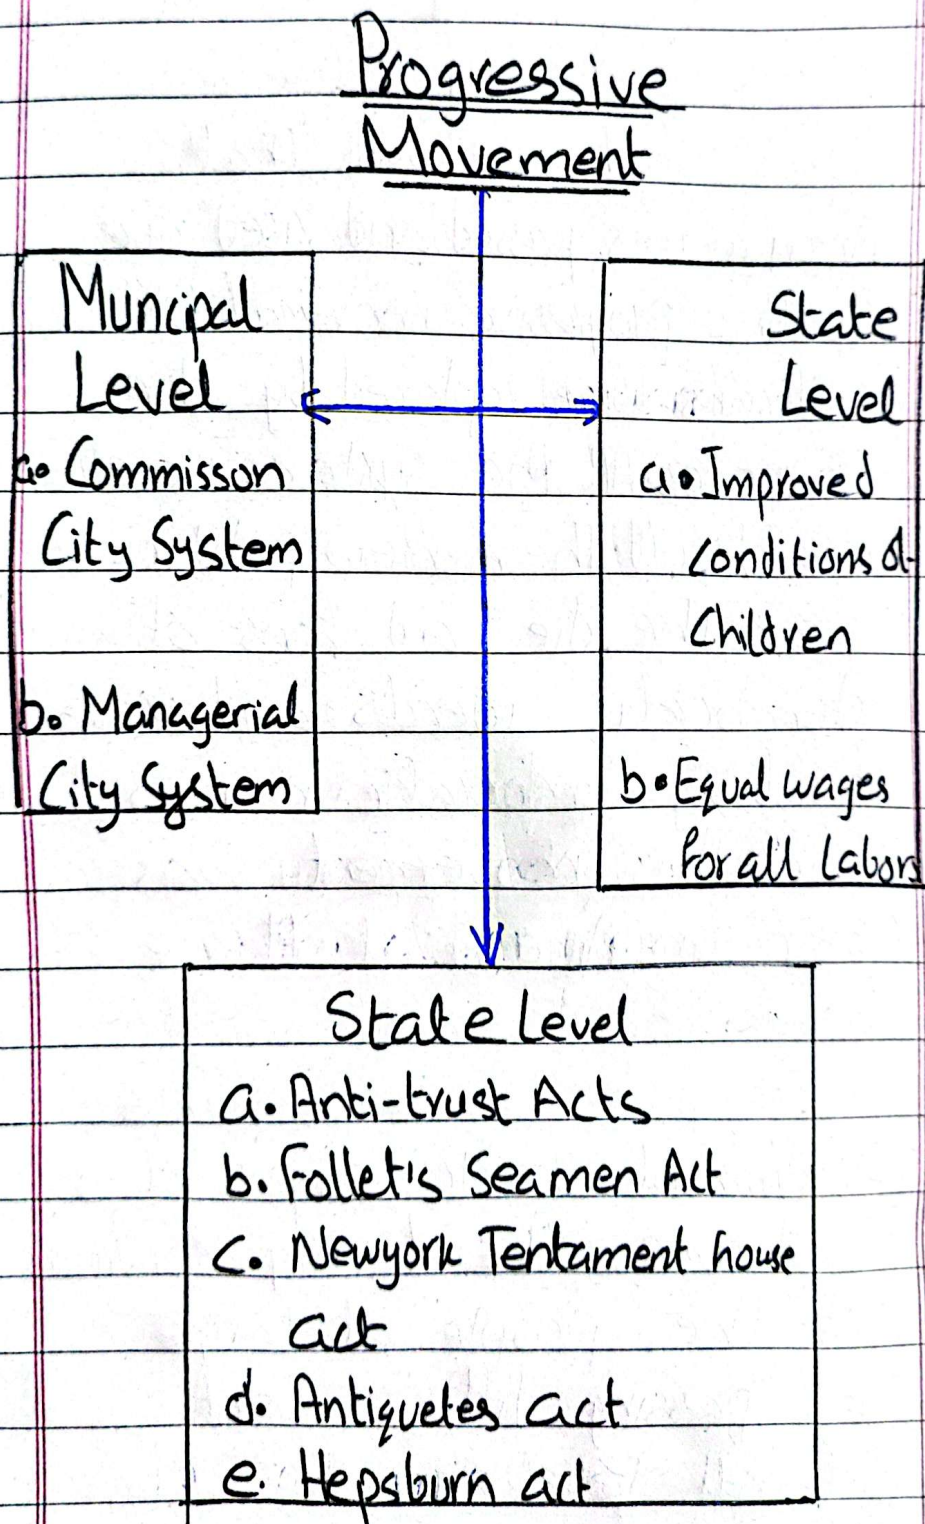 Progressive
Movement
Muncipal
Level
a. Commisson
City System
b. Managerial
City System
State
Level
a. Improved
conditions of
Children
b. Equal wages
for all Labors
State Level
a. Anti-trust Acts
b. Follet's Seamen Act
c. Newyork Tentament house
act
d. Antiquetes act
e. Hepsburn act